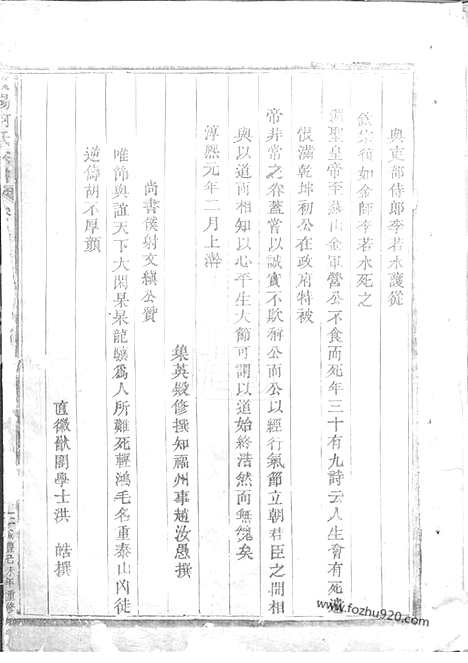 與吏部侍郎李若水護從
欽宗須如金師李若水死之
淵聖皇帝至蘇山金軍營公不食而死年三十有九詩云人生會有死遺
恨滿乾坤初公在政府特被
帝非常之眷蓋嘗以誠實不欺稱公而公以經行氣節立朝君臣之間相
與以道相知以心平生大節可謂以道始終浩然而無愧矣
淳熙元年二月上澣
集英殿修撰知福州事趙汝愚撰
尚書僕射文縝公贊
唯師與誼天下大閑杲杲龍驤為人所難死輕鴻毛名重泰山凶徒
逆儔胡不厚顏
直徽猷閣學士洪 皓撰
陽何氏
年重修
www.fozhu920.com